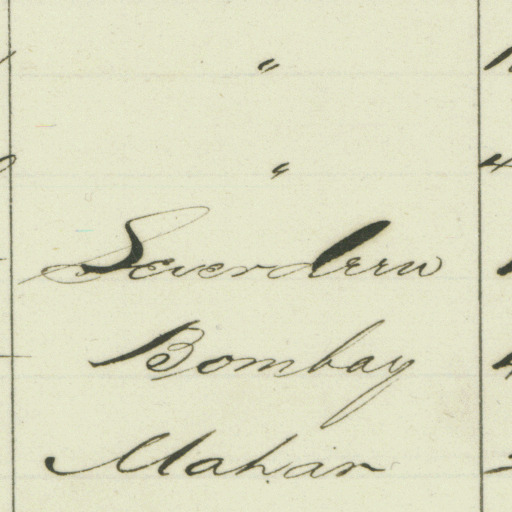 "
"
Severdrru
Bombay
Mahar